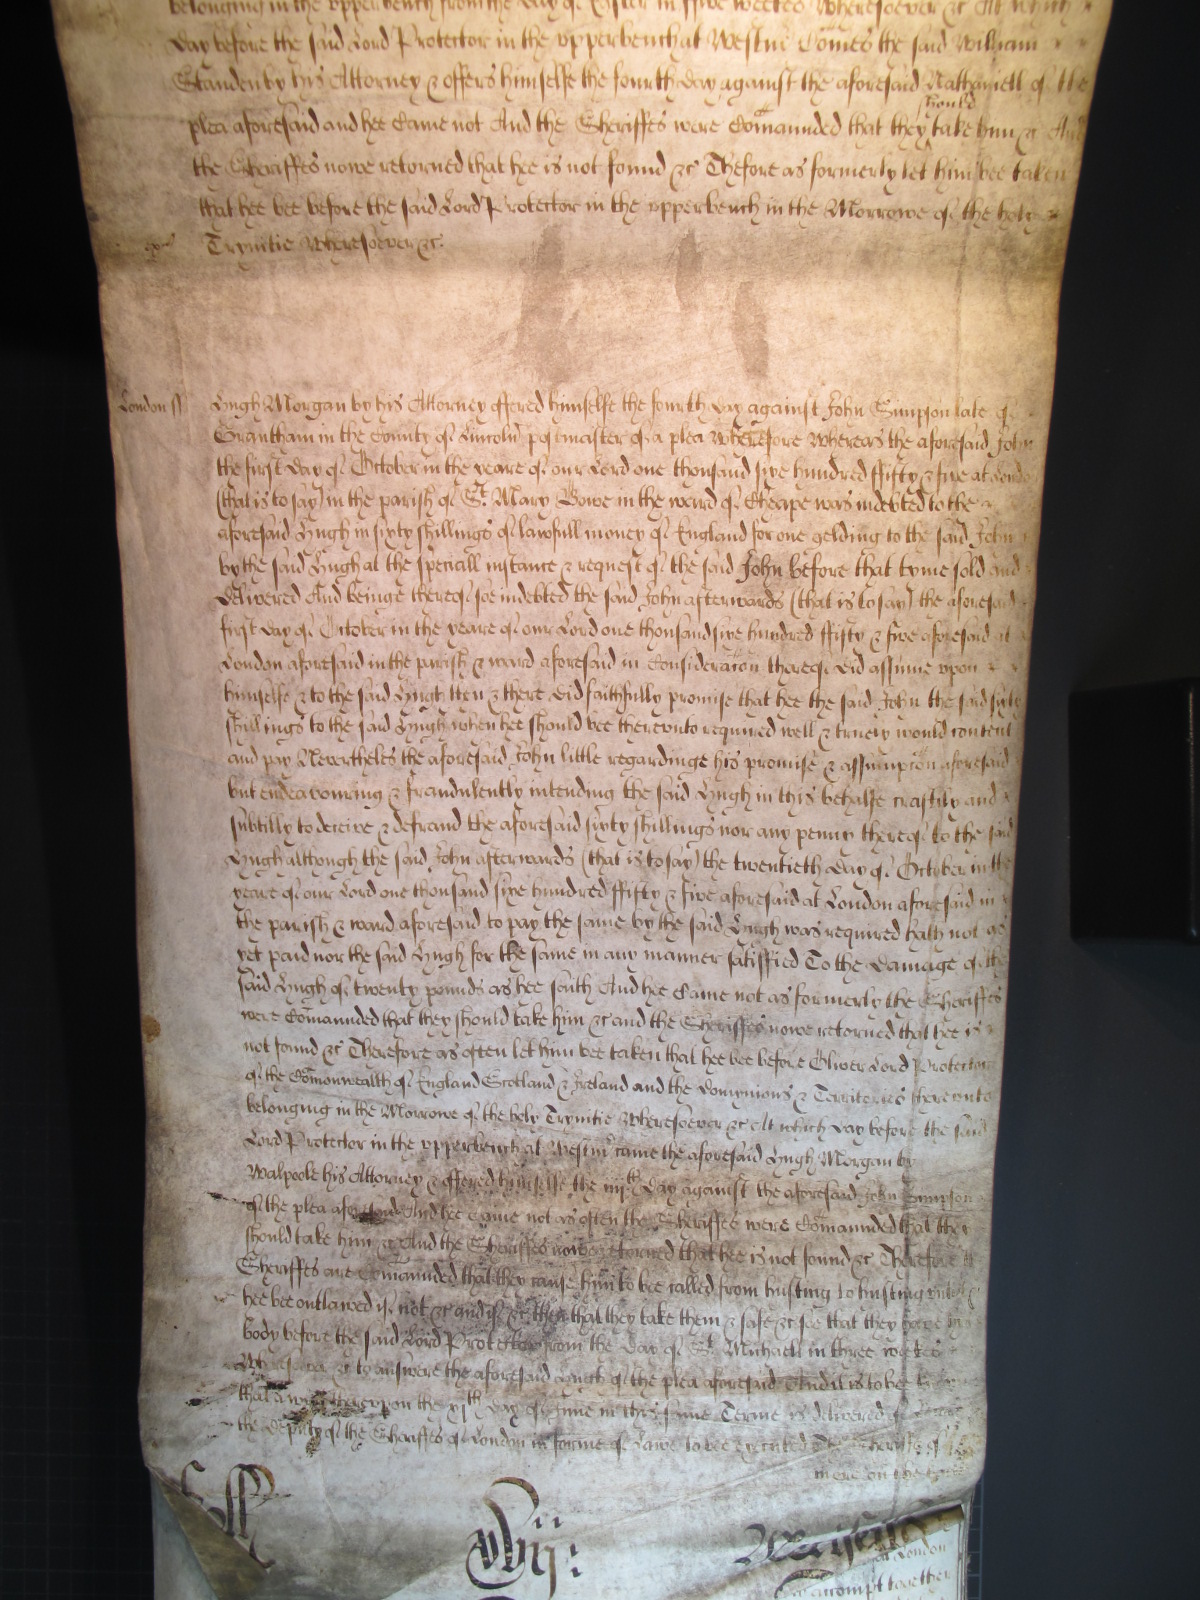 belonging in the upperbench from the day of Easter in ffive weekes wheresoever &c At which
day before the said Lord Protector in the upperbench at Westm̃ Comes the said William
Standen by his Attorney & offers himselfe the fourth day against the aforesaid Nathaniell of the
should
plea aforesaid and hee Came not And the Sheriffes were Com̃aunded that they take him &c And
the Sheriffes nowe retorned that hee is not found &c Thefore as formerly let him bee taken
that hee bee before the said Lord Protector in the upperbench in the Morrowe of the holy
Trynitie wheresoever &c.
London ss Hugh Morgan by his Attorney offered himselfe the fourth day against John Simpson late of
Grantham in the County of Lincoln postmaster of a plea wherefore Whereas the aforesaid John
the first day of October in the yeare of our Lord one thousand sixe hundred ffifty & five at London
(that is to say) in the parish of St. Mary Bowe in the ward of Cheape was indebted to the
aforesaid Hugh in sixty shillings of lawfull money of England for one gelding to the said John
by the said Hugh at the speciall instance & request of the said John before that tyme sold and
delivered And beinge thereof soe indebted the said John afterwards (that is to say) the aforesaid
first day of October in the yeare of our Lord one thousand sixe hundred ffifty & five aforesaid at
London aforesaid in the parish & ward aforesaid in Consideracion thereof did assume upon
himselfe & to the said Hugh then & there did faithfully promise that hee the said John the said sixty
shillings to the said Hugh when hee should bee thereunto required well & truely would content
and pay Nevertheles the aforesaid John little regardinge his promise & assumpcion aforesaid
but endeavouring & fraudulently intending the said Hugh in this behalfe craftily and
subtilly to deceive & defraud the aforesaid sixty shillings nor any penny thereof to the said
Hugh although the said John afterwards (that is to say) the twentieth day of October in the
yeare of our Lord one thousand sixe hundred ffifty & five aforesaid at London aforesaid in
the parish & ward aforesaid to pay the same by the said Hugh was required hath not as
yet paid nor the said Hugh for the same in any manner satisffied To the damage of the
said Hugh of twenty pounds as hee saith And hee Came not as formerly the Sheriffes
were Com̃aunded that they should take him &c and the Sheriffes nowe retorned that hee is
not found &c Therefore as often let him bee taken that hee bee before Oliver Lord Protector
of the Com̃onwealth of England Scotland & Ireland and the Domynions & Territories thereunto
belonging in the Morrowe of the holy Trynitie wheresoever &c At which day before the said
Lord Protector in the upperbench at Westm̃ came the aforesaid Hugh Morgan by
Walpoole his Attorney & offered himselfe the iiijth day against the aforesaid John Simpson
of the plea aforesaid And hee Came not as often the Sheriffes were Com̃aunded that they
should take him &c And the Sheriffes nowe retorned that hee is not found &c Therefore
Sheriffes are Com̃aunded that they cause him to bee called from husting to husting untill
hee bee outlawed if not &c and if &c then that they take them & safe &c soe that they have
body before the said Lord Protector from the day of St. Michaell in three weekes
Wheresoever &c to answere the aforesaid Hugh of the plea aforesaid And it is to bee
that a writt thereupon the xjth day of June in this same Terme is delivered
the deputy of the Sheriffes of London in forme of Lawe to bee executed
more on the